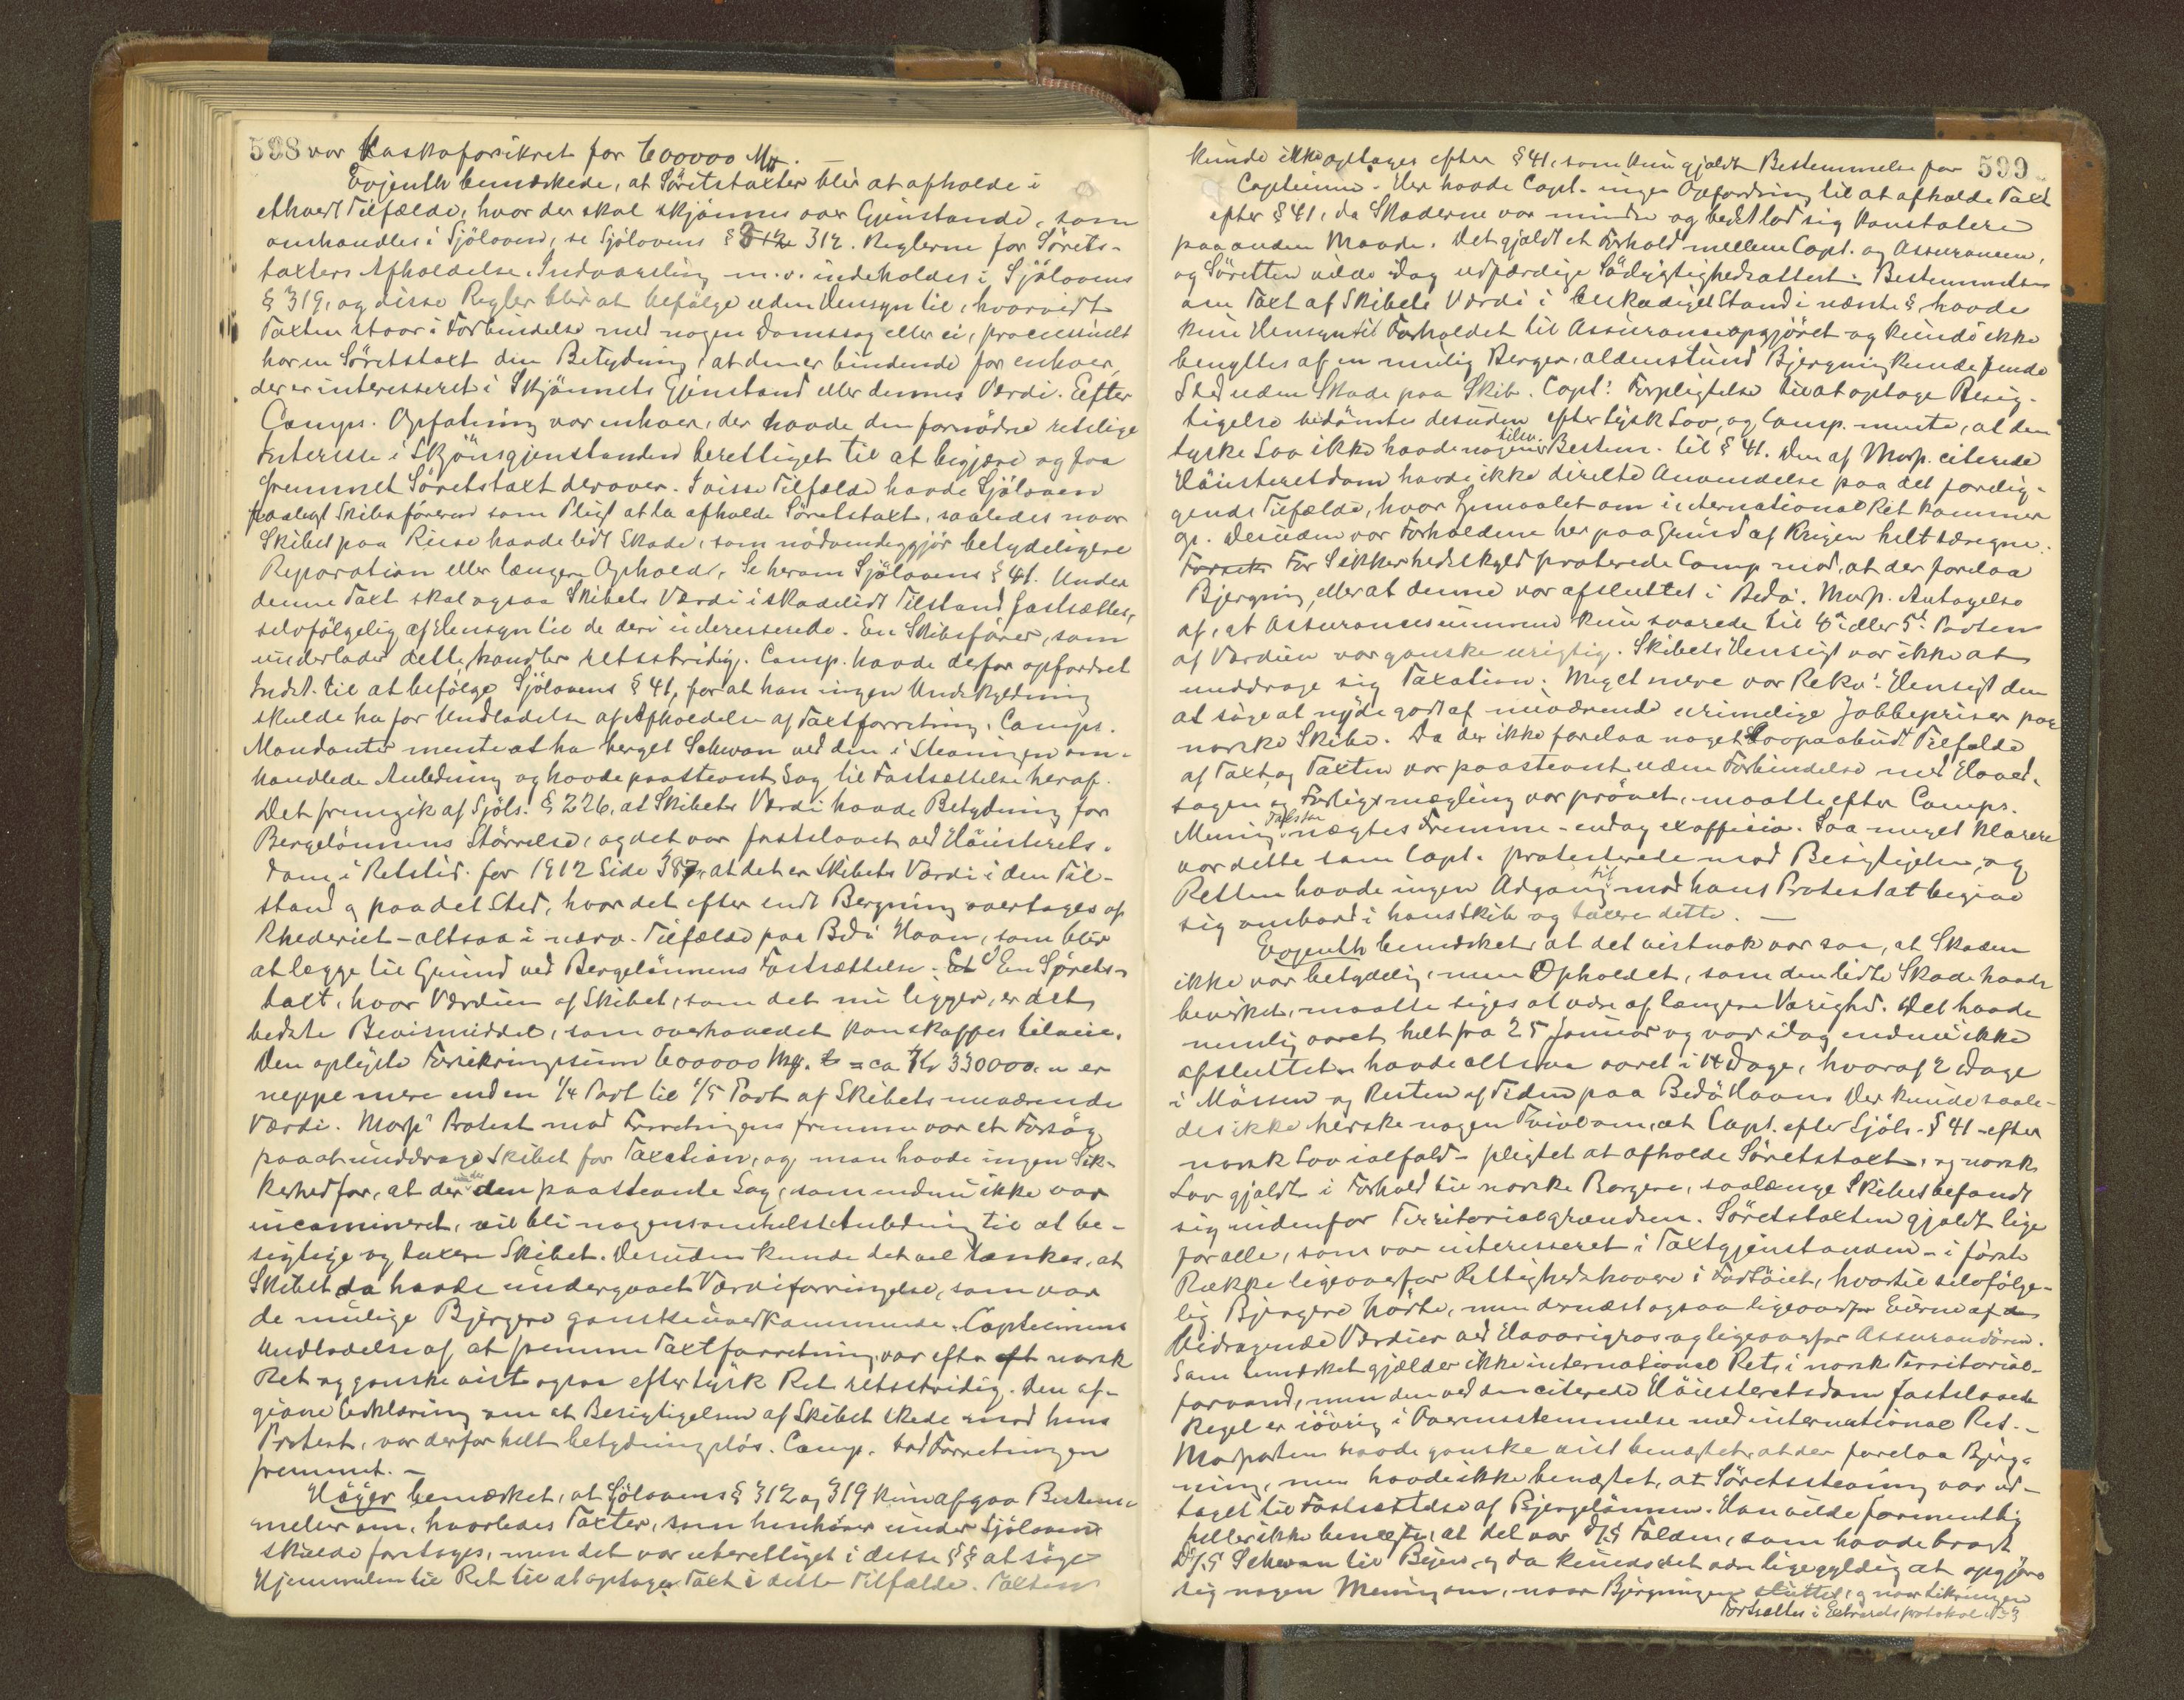 598 var Kaskoforsikret for 600000 Mk. —
Evjenth bemærkede, at Söretstaxter blir at afholde i
ethvert Tilfælde, hvor der skal skjönnes over Gjenstande, som
omhandles i Sjöloven, se Sjölovens § 312. Reglerne for Sörets-
taxters Afholdelse, Indvarsling m. v. indeholdes i Sjölovens
§ 319, og disse Regler blir at befölge uden Hensyn til, hvorvidt
Taxten staar i Forbindelse med nogen Domssag eller ei, processuelt
har en Söretstaxt den Betydning, at den er bindende for enhver,
der er interesseret i Skjönnets Gjenstand eller dennes Værdi. Efter
Comps. Opfatning var enhver, der havde den fornödne retslige
Interesse i Skjönsgjenstanden berettiget til at begjære og faa
fremmet Söretstaxt derover. I visse Tilfælde havde Sjöloven
paalagt Skibsföreren som Pligt at la afholde Söretstaxt, saaledes naar
Skibet paa Reise havde lidt Skade, som nödvendiggjör betydeligere
Reparation eller længere Ophold, se herom Sjölovens § 41. Under
denne Taxt skal ogsaa Skibets Værdi i skadelidt Tilstand fastsættes,
selvfölgelig af Hensyn til de deri interesserede. En Skibsförer, som
underlader dette, handler retsstridig. Comp. havde derfor opfordret
Indst. til at befölge Sjölovens § 41, for at han ingen Undskyldning
skulde ha for Undladelse af Afholdelse af Taxtforretning. Comps.
Mandanter mente at ha berget Schwan ved den i Stevningen om-
handlede Anledning og havde paastevnt Sag til Fastsættelse heraf.
Det fremgik af Sjöls. § 226, at Skibets Værdi havde Betydning for
Bergelönnens Störrelse, og det var fastslaaet ved Höiesterets-
dom i Retstid. for 1912 Side 387, at det er Skibets Værdi i den Til-
stand og paa det Sted, hvor det efter endt Bergning overtages af
Rhederiet – altsaa i nærv. Tilfælde paa Bodö Havn, som blir
at lægge til Grund ved Bergelönnens Fastsættelse. En Sörets-
taxt, hvor Værdien af Skibet, som det nu ligger, er det
bedste Bevismiddel, som overhovedet kan skaffes tilveie.
Den oplyste Forsikringssum 600000 Mk. = ca Kr 530000.- er
neppe mere end en 1/4 Part til 1/5 Part af Skibets nuværende
Værdi. Modp' Protest mod Forretningens fremme var et Forsög
paa at unddrage Skibet for Taxation, og man havde ingen Sik-
kerhed for, at der under den paastevnte Sag, som endnu ikke var
incamineret, vil bli nogensomhelst Anledning til at be-
sigtige og taxere Skibet. Desuden kunde det vel tænkes, at
Skibet da havde undergaaet Værdiforringelse, som var
de mulige Bjergere ganske uvedkommende. Capteinens
Undladelse af at fremme Taxtforretning var efter norsk
Ret og ganske vist ogsaa efter tysk Ret retsstridig. Den af-
givne Erklæring om at Besigtigelsen af Skibet skede mod hans
Protest, var derfor helt betydningslös. Comp. bad Forretningen
fremmet. —
Höyer bemærket, at Sjölovens § 312 og 319 kun afgav Bestem-
melser om, hvorledes Taxter, som henhörer under Sjöloven
skulde foretages, men det var uberettiget i disse §§ at söge
Hjemmelen til Ret til at optage Taxt i dette Tilfælde. Taxten
kunde ikke optages efter § 41, som kun gjaldt Bestemmelse for 599
Capteinen. Her havde Capt. ingen Opfordring til at afholde Taxt
efter § 41, da Skaderne var mindre og bedst lod sig konstatere
paa anden Maade. Det gjaldt et Forhold mellem Capt. og Assurancen,
og Söretten vilde idag udfærdige Södygtighedsattest. Bestemmelsen
om Taxt af Skibets Værdi i beskadiget Stand i næste § havde
kun Hensyn til Forholdet til Assuranceopgjöret og kunde ikke
benyttes af en mulig Berger, aldenstund Bjergning kunde finde
Sted uden Skade paa Skib. Capt' Forpligtelse til at optage Besig-
tigelse bedömtes desuden efter tysk Lov, og Comp. mente, at den
tyske Lov ikke havde nogen tilsv. Bestem. til § 41. Den af Modp. citerede
Höiesteretsdom havde ikke direkte Anvendelse paa det forelig-
gende Tilfælde, hvor Spörsmaalet om international Ret kommer
op. Desuden var Forholdene her paa Grund af Krigen helt særegne.
For Sikkerhedsskyld proterede Comp mod, at der forelaa
Bjergning, eller at denne var afsluttet i Bodö. Modp. Antagelse
af, at Assurancesummen kun svarede til 4de eller 5te Parten
af Værdien var ganske urigtig. Skibets Hensigt var ikke at
unddrage sig Taxation. Meget mere var Rekv' Hensigt den
at söge at nyde godt af nuværende urimelige Jobbepriser paa
norske Skibe. Da der ikke forelaa noget Lovpaabudt Tilfælde
af Taxt og Taxten var paastevnt uden Forbindelse med Hoved-
sagen og Forligsmægling var prövet, maatte efter Comps.
Mening Taxten nægtes Fremme – endog exofficio. Saa meget klarere
var dette som Capt. protesterede mod Besigtigelsen, og
Retten havde ingen Adgang til mod hans Protest at begive
sig ombord i hans Skib og taxere dette. —
Evjenth bemærket, at det vistnok var saa, at Skaden
ikke var betydelig, men Opholdet, som den lidte Skade havde
bevirket, maatte siges at være af længere Varighed. Det havde
nemlig varet helt fra 25 Januar og var idag endnu ikke
afsluttet, havde altsaa varet i 14 Dage, hvoraf 2 Dage
i Mössen og Resten af Tiden paa Bodö Havn. Der kunde saale-
des ikke herske nogen Tvivl om, at Capt. efter Sjöls. § 41 – efter
norsk Lov ialfald – pligtet at afholde Söretstaxt, og norsk
Lov gjaldt i Forhold til norske Borgere, saalænge Skibet befandt
sig indenfor Territorialgrændsen. Söretstaxten gjaldt lige
for alle, som var interesseret i Taxtgjenstanden – i förste
Række ligeoverfor Rettighedshavere i Fartöiet, hvortil selvfölge-
lig Bjergere hörte, men dernæst ogsaa ligeoverfor Eierne af
bidragende Værdier ved Havarigros og ligeoverfor Assurandören.
Som bemærket gjælder ikke international Ret i norsk Territorial-
farvand, men den ved den citerede Höiesteretsdom fastslaaede
Regel er iövrig i Overensstemmelse med international Ret. –
Modparten havde ganske vist benægtet, at der forelaa Bjerg-
ning, men havde ikke benægtet, at Söretsstevning var ud-
taget til Fastsættelse af Bjergelönnen. Han vilde formentlig
heller ikke benægte, at det var D/S Folden, som havde bragt
D/S Schwan til Bodö, og da kunde det være ligegyldig at opgjöre
sig nogen Mening om, naar Bjergningen sluttet, og naar Sikringen
Fortsættes i Extraretsprotokol No 3